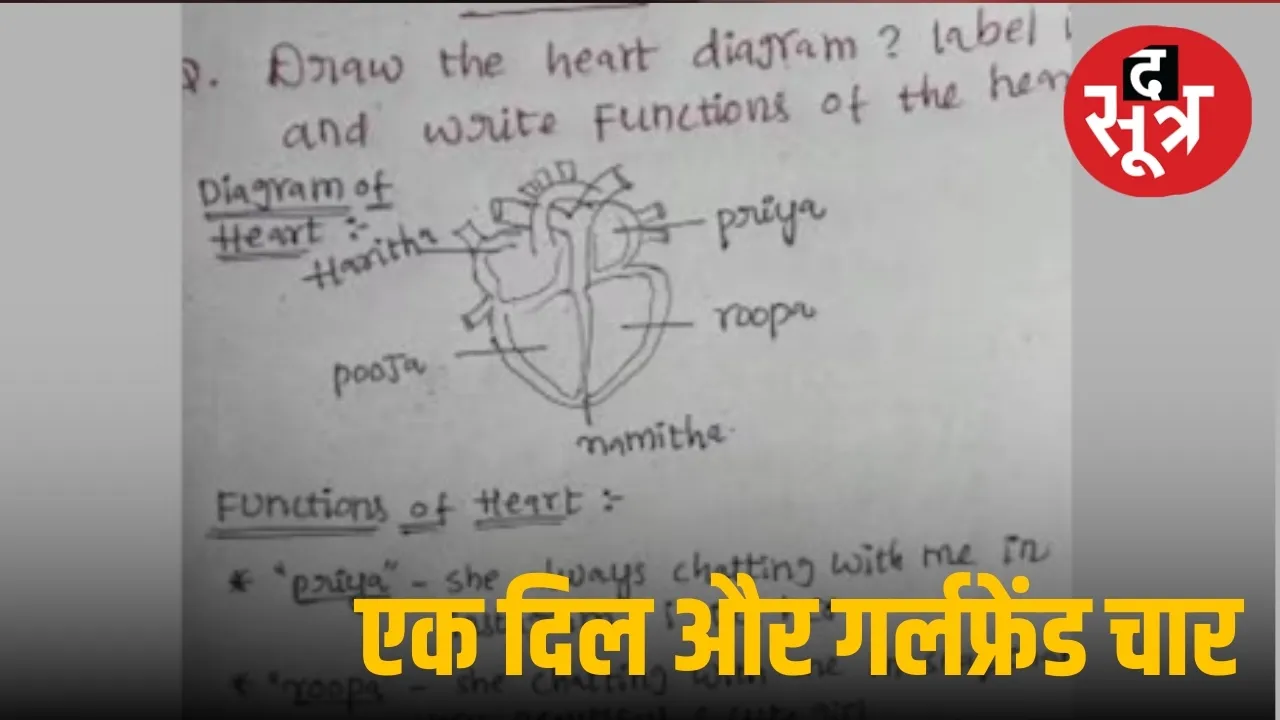 Q. Draw the heart diagram? label i
and write Functions of the hear
द
सूत्र
Diagram of
Heart :-
Haritha
priya
roopa
pooja
namitha
Functions of Heart :-
* "priya" - she always chatting with me in
* "roopa - she chatting with me
एक दिल और गर्लफ्रेंड चार